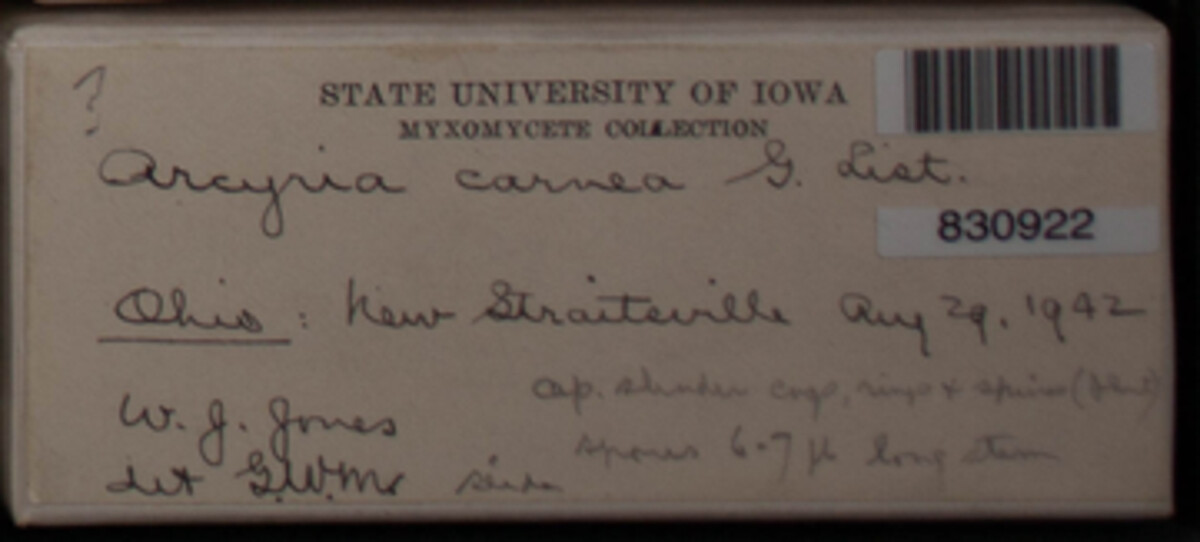 ?
STATE UNIVERSITY OF IOWA
MYXOMYCETE COLLECTION
Arcyria carnea G. List.
830922
Ohio : New Straitsville Aug 29, 1942
cap. slender cogs, rings & spines
W. J. Jones
spores 6-7 µ long stem
det G.W.M.